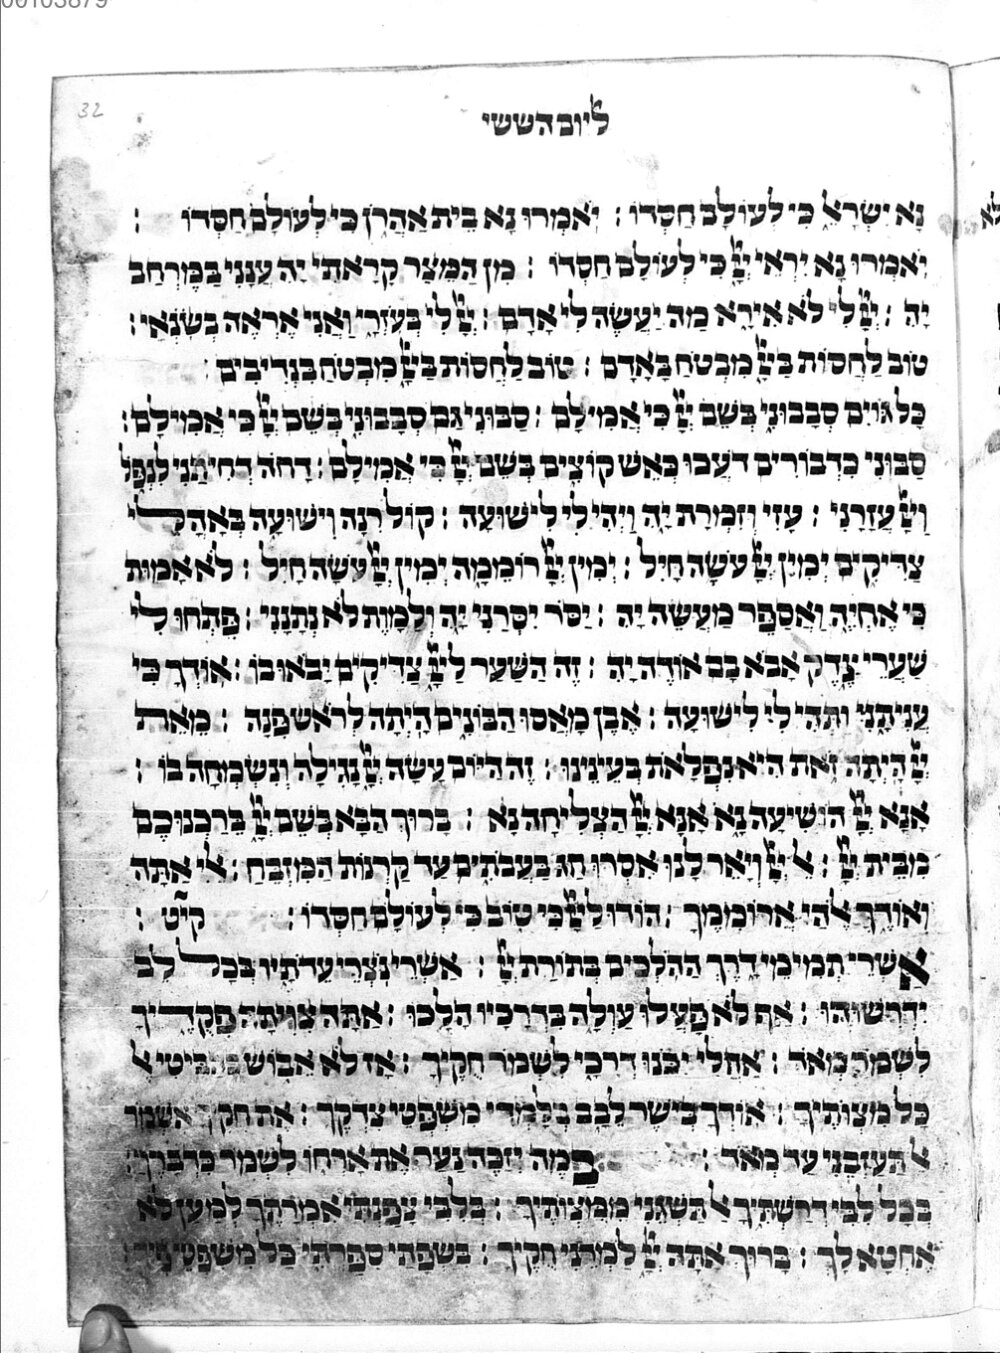 00103879
32
ליום הששי
נא ישראל כי לעולם חסדו : יאמרו נא בית אהרן כי לעולם חסדו :
יאמרו נא יראי יי כי לעולם חסדו : מן המצר קראתי יה ענני במרחב
יה : יי לי לא אירא מה יעשה לי אדם : יי לי בעזרי ואני אראה בשנאי :
טוב לחסות ביי מבטח באדם : טוב לחסות ביי מבטח בנדיבים :
כל גוים סבבוני בשם יי כי אמילם : סבוני גם סבבוני בשם יי כי אמילם :
סבוני כדבורים דעכו כאש קוצים בשם יי כי אמילם : דחה דחיתני לנפל
ויי עזרני : עזי וזמרת יה ויהי לי לישועה : קול רנה וישועה באהלי
צדיקים ימין יי עשה חיל : ימין יי רוממה ימין יי עשה חיל : לא אמות
כי אחיה ואספר מעשה יה : יסר יסרני יה ולמות לא נתנני : פתחו לי
שערי צדק אבא בם אודה יה : זה השער ליי צדיקים יבאו בו : אודך כי
עניתני ותהי לי לישועה : אבן מאסו הבונים היתה לראש פנה : מאת
יי היתה זאת היא נפלאת בעינינו : זה היום עשה יי נגילה ונשמחה בו :
אנא יי הושיעה נא אנא יי הצליחה נא : ברוך הבא בשם יי ברכנוכם
מבית יי : אל יי ויאר לנו אסרו חג בעבתים עד קרנות המזבח : אלי אתה
ואודך אלהי ארוממך : הודו ליי כי טוב כי לעולם חסדו : קיט :
אשרי תמימי דרך ההלכים בתורת יי : אשרי נצרי עדתיו בכל לב
ידרשוהו : אף לא פעלו עולה בדרכיו הלכו : אתה צויתה פקדיך
לשמר מאד : אחלי יכנו דרכי לשמר חקיך : אז לא אבוש בהביטי אל
כל מצותיך : אודך בישר לבב בלמדי משפטי צדקך : את חקיך אשמר
אל תעזבני עד מאד : במה יזכה נער את ארחו לשמר כדברך :
בכל לבי דרשתיך אל תשגני ממצותיך : בלבי צפנתי אמרתך למען לא
אחטא לך : ברוך אתה יי למדני חקיך : בשפתי ספרתי כל משפטי פיך :